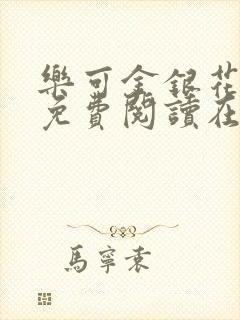 樂可金銀花
免費閱讀在
馬寧袁